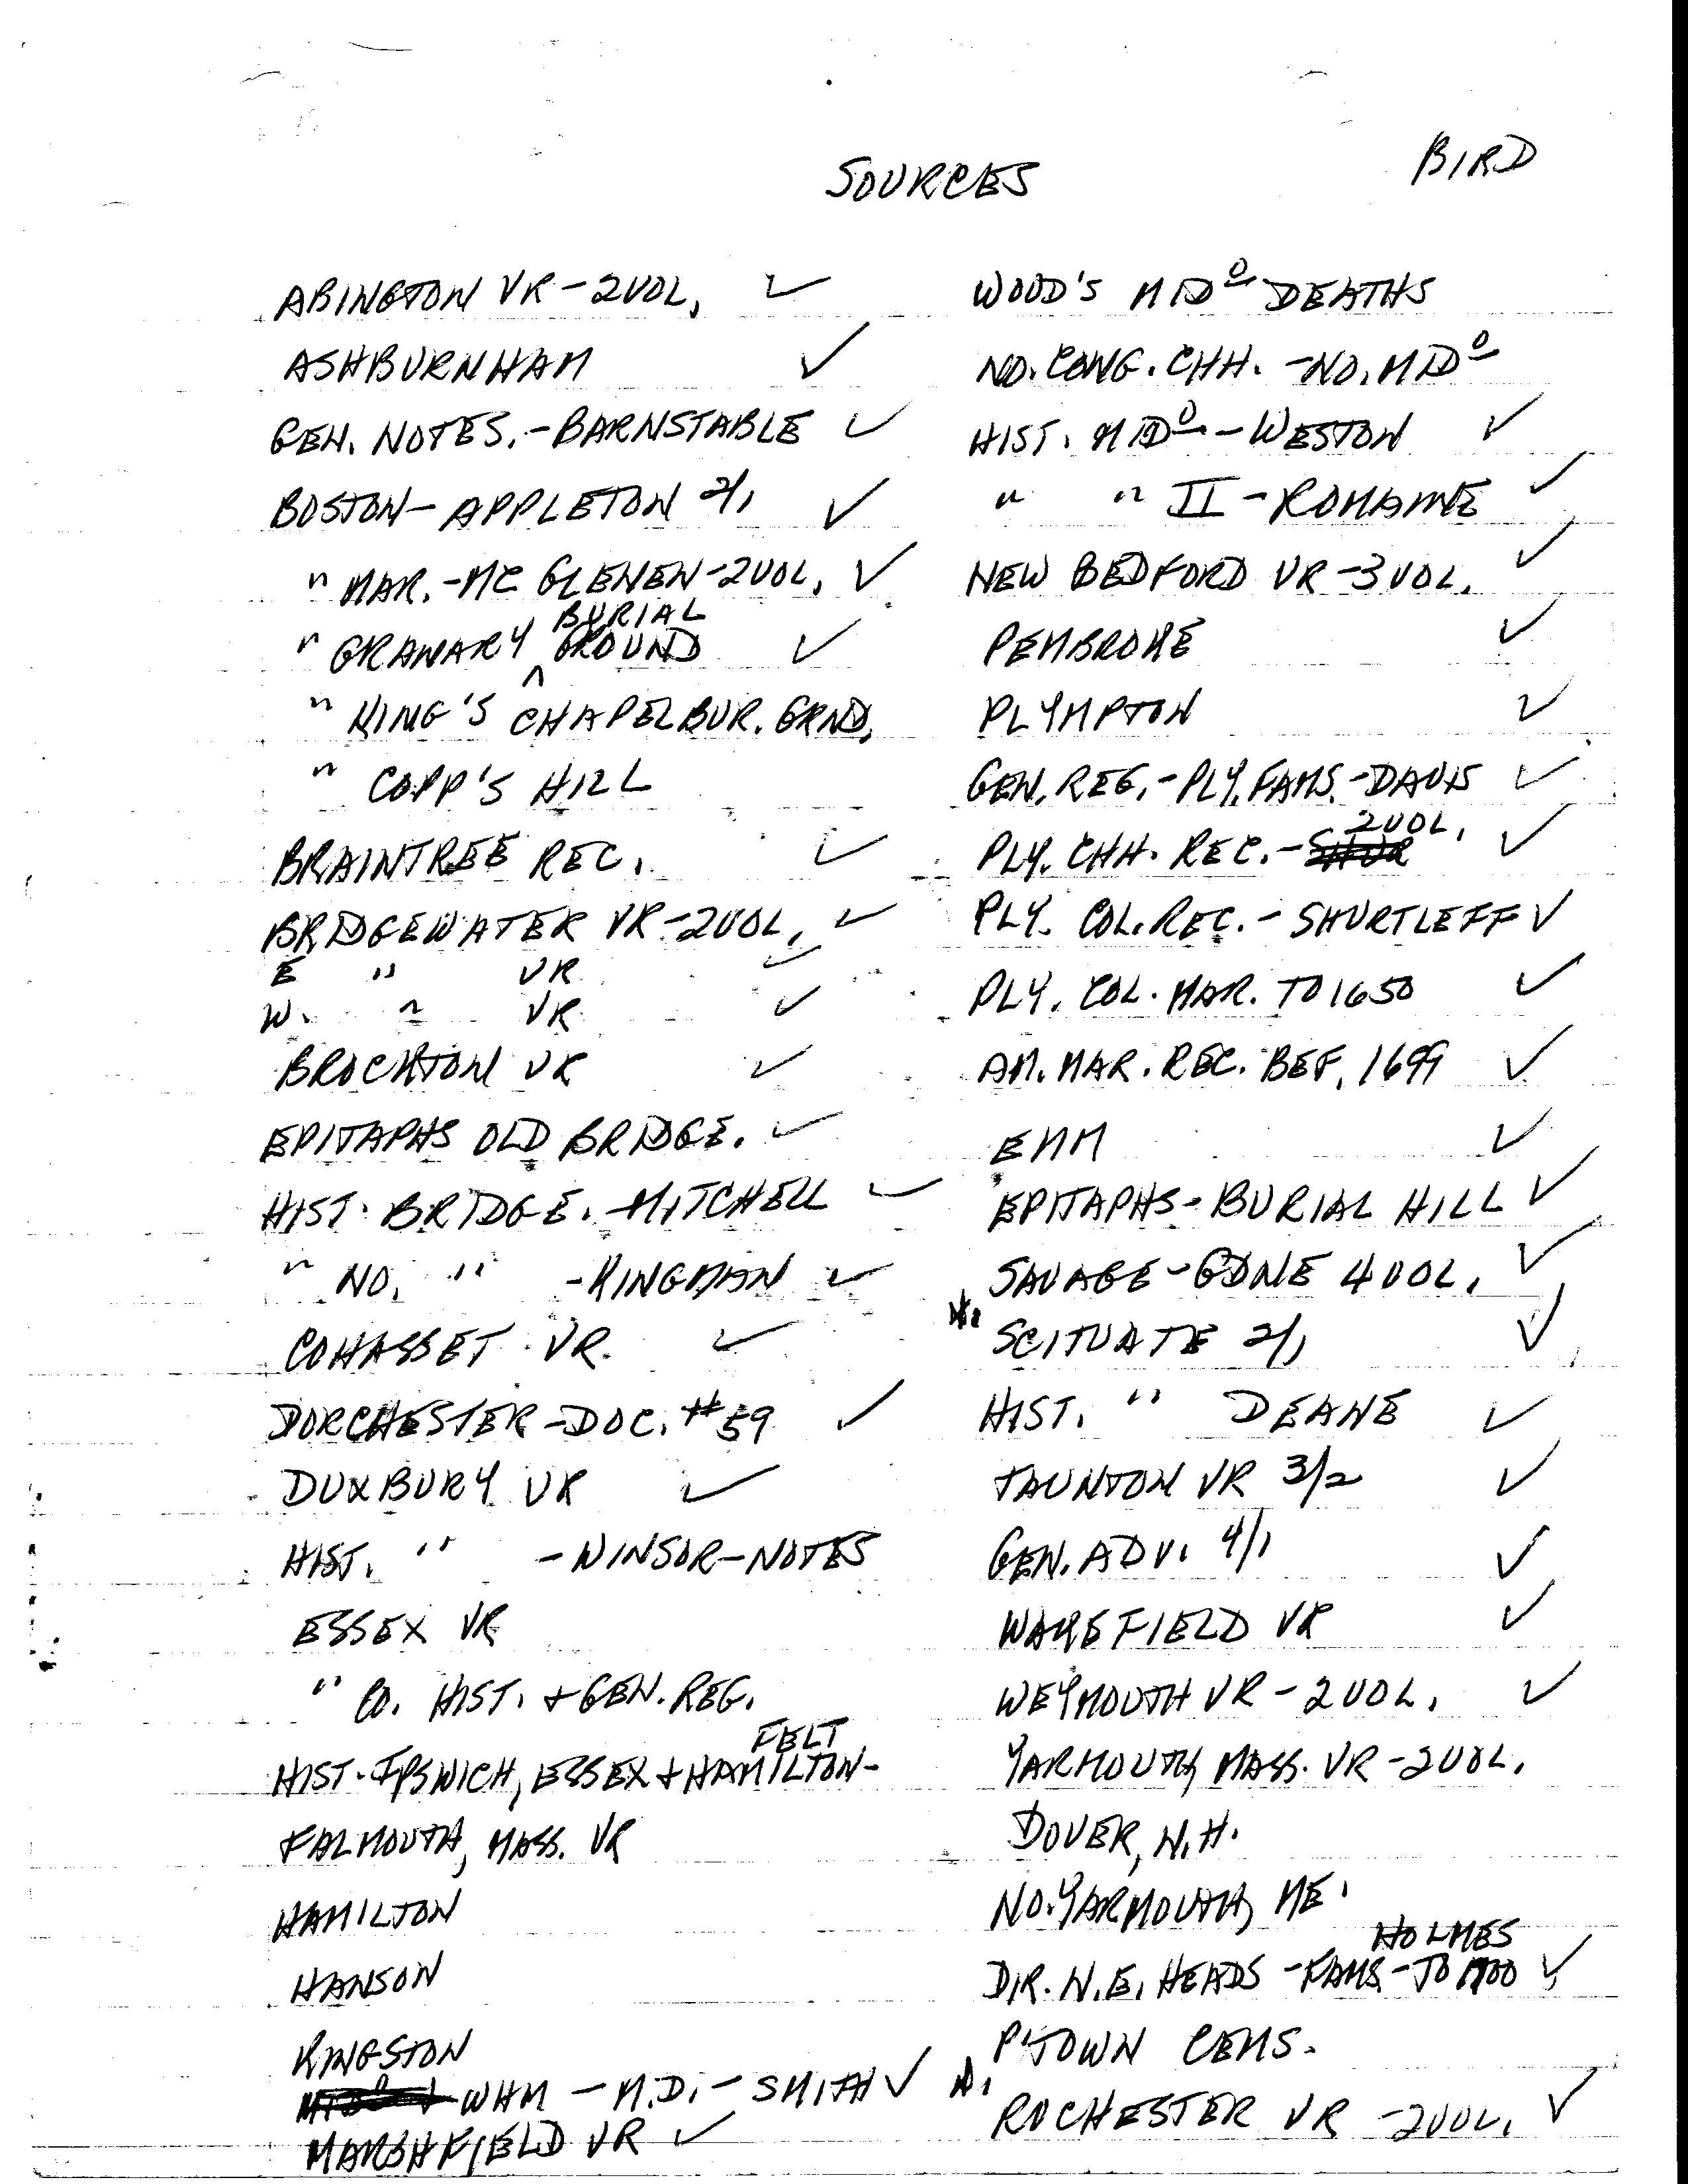 SOURCES
BIRD
ABINGTON VR - 2 VOL. ✓
ASHBURNHAM ✓
GEN. NOTES. - BARNSTABLE ✓
BOSTON - APPLETON 2/1 ✓
" MAR. - MC GLENEN - 2 VOL. ✓
BURIAL
" GRANARY ^ GROUND ✓
" KING'S CHAPEL BUR. GRND.
" COPP'S HILL
BRAINTREE REC. ✓
BRIDGEWATER VR - 2 VOL. ✓
E " VR ✓
W. " VR ✓
BROCKTON VR ✓
EPITAPHS OLD BRIDGE. ✓
HIST. BRIDGE. - MITCHELL ✓
" NO. " - KINGMAN ✓
COHASSET VR. ✓
DORCHESTER - DOC. #59 ✓
DUXBURY VR ✓
HIST. " - WINSOR - NOTES
ESSEX VR
" CO. HIST. + GEN. REG.
FELT
HIST. IPSWICH, ESSEX + HAMILTON -
FALMOUTH, MASS. VR
HAMILTON
HANSON
KINGSTON
WHM - M.D. - SMITH ✓
MARSHFIELD VR ✓
WOOD'S MIDº DEATHS
NO. CONG. CHH. - NO. MIDº
HIST. MIDº - WESTON ✓
" " II - ROMAINE ✓
NEW BEDFORD VR - 3 VOL. ✓
PEMBROKE ✓
PLYMPTON ✓
GEN. REG. - PLY. FAMS. - DAVIS ✓
2 VOL.
PLY. CHH. REC. - SHUR ✓
PLY. COL. REC. - SHURTLEFF ✓
PLY. COL. MAR. TO 1650 ✓
AM. MAR. REC. BEF. 1699 ✓
EMM ✓
EPITAPHS - BURIAL HILL ✓
SAVAGE - GDNE 4 VOL. ✓
SCITUATE 2/1 ✓
HIST. " DEANE ✓
TAUNTON VR 3/2 ✓
GEN. ADV. 4/1 ✓
WAKEFIELD VR ✓
WEYMOUTH VR - 2 VOL. ✓
YARMOUTH, MASS. VR - 2 VOL.
DOVER, N.H.
NO. YARMOUTH, ME.
HOLMES
DIR. N.E. HEADS - FAMS - TO 1700 ✓
P'TOWN CEMS.
ROCHESTER VR - 2 VOL. ✓